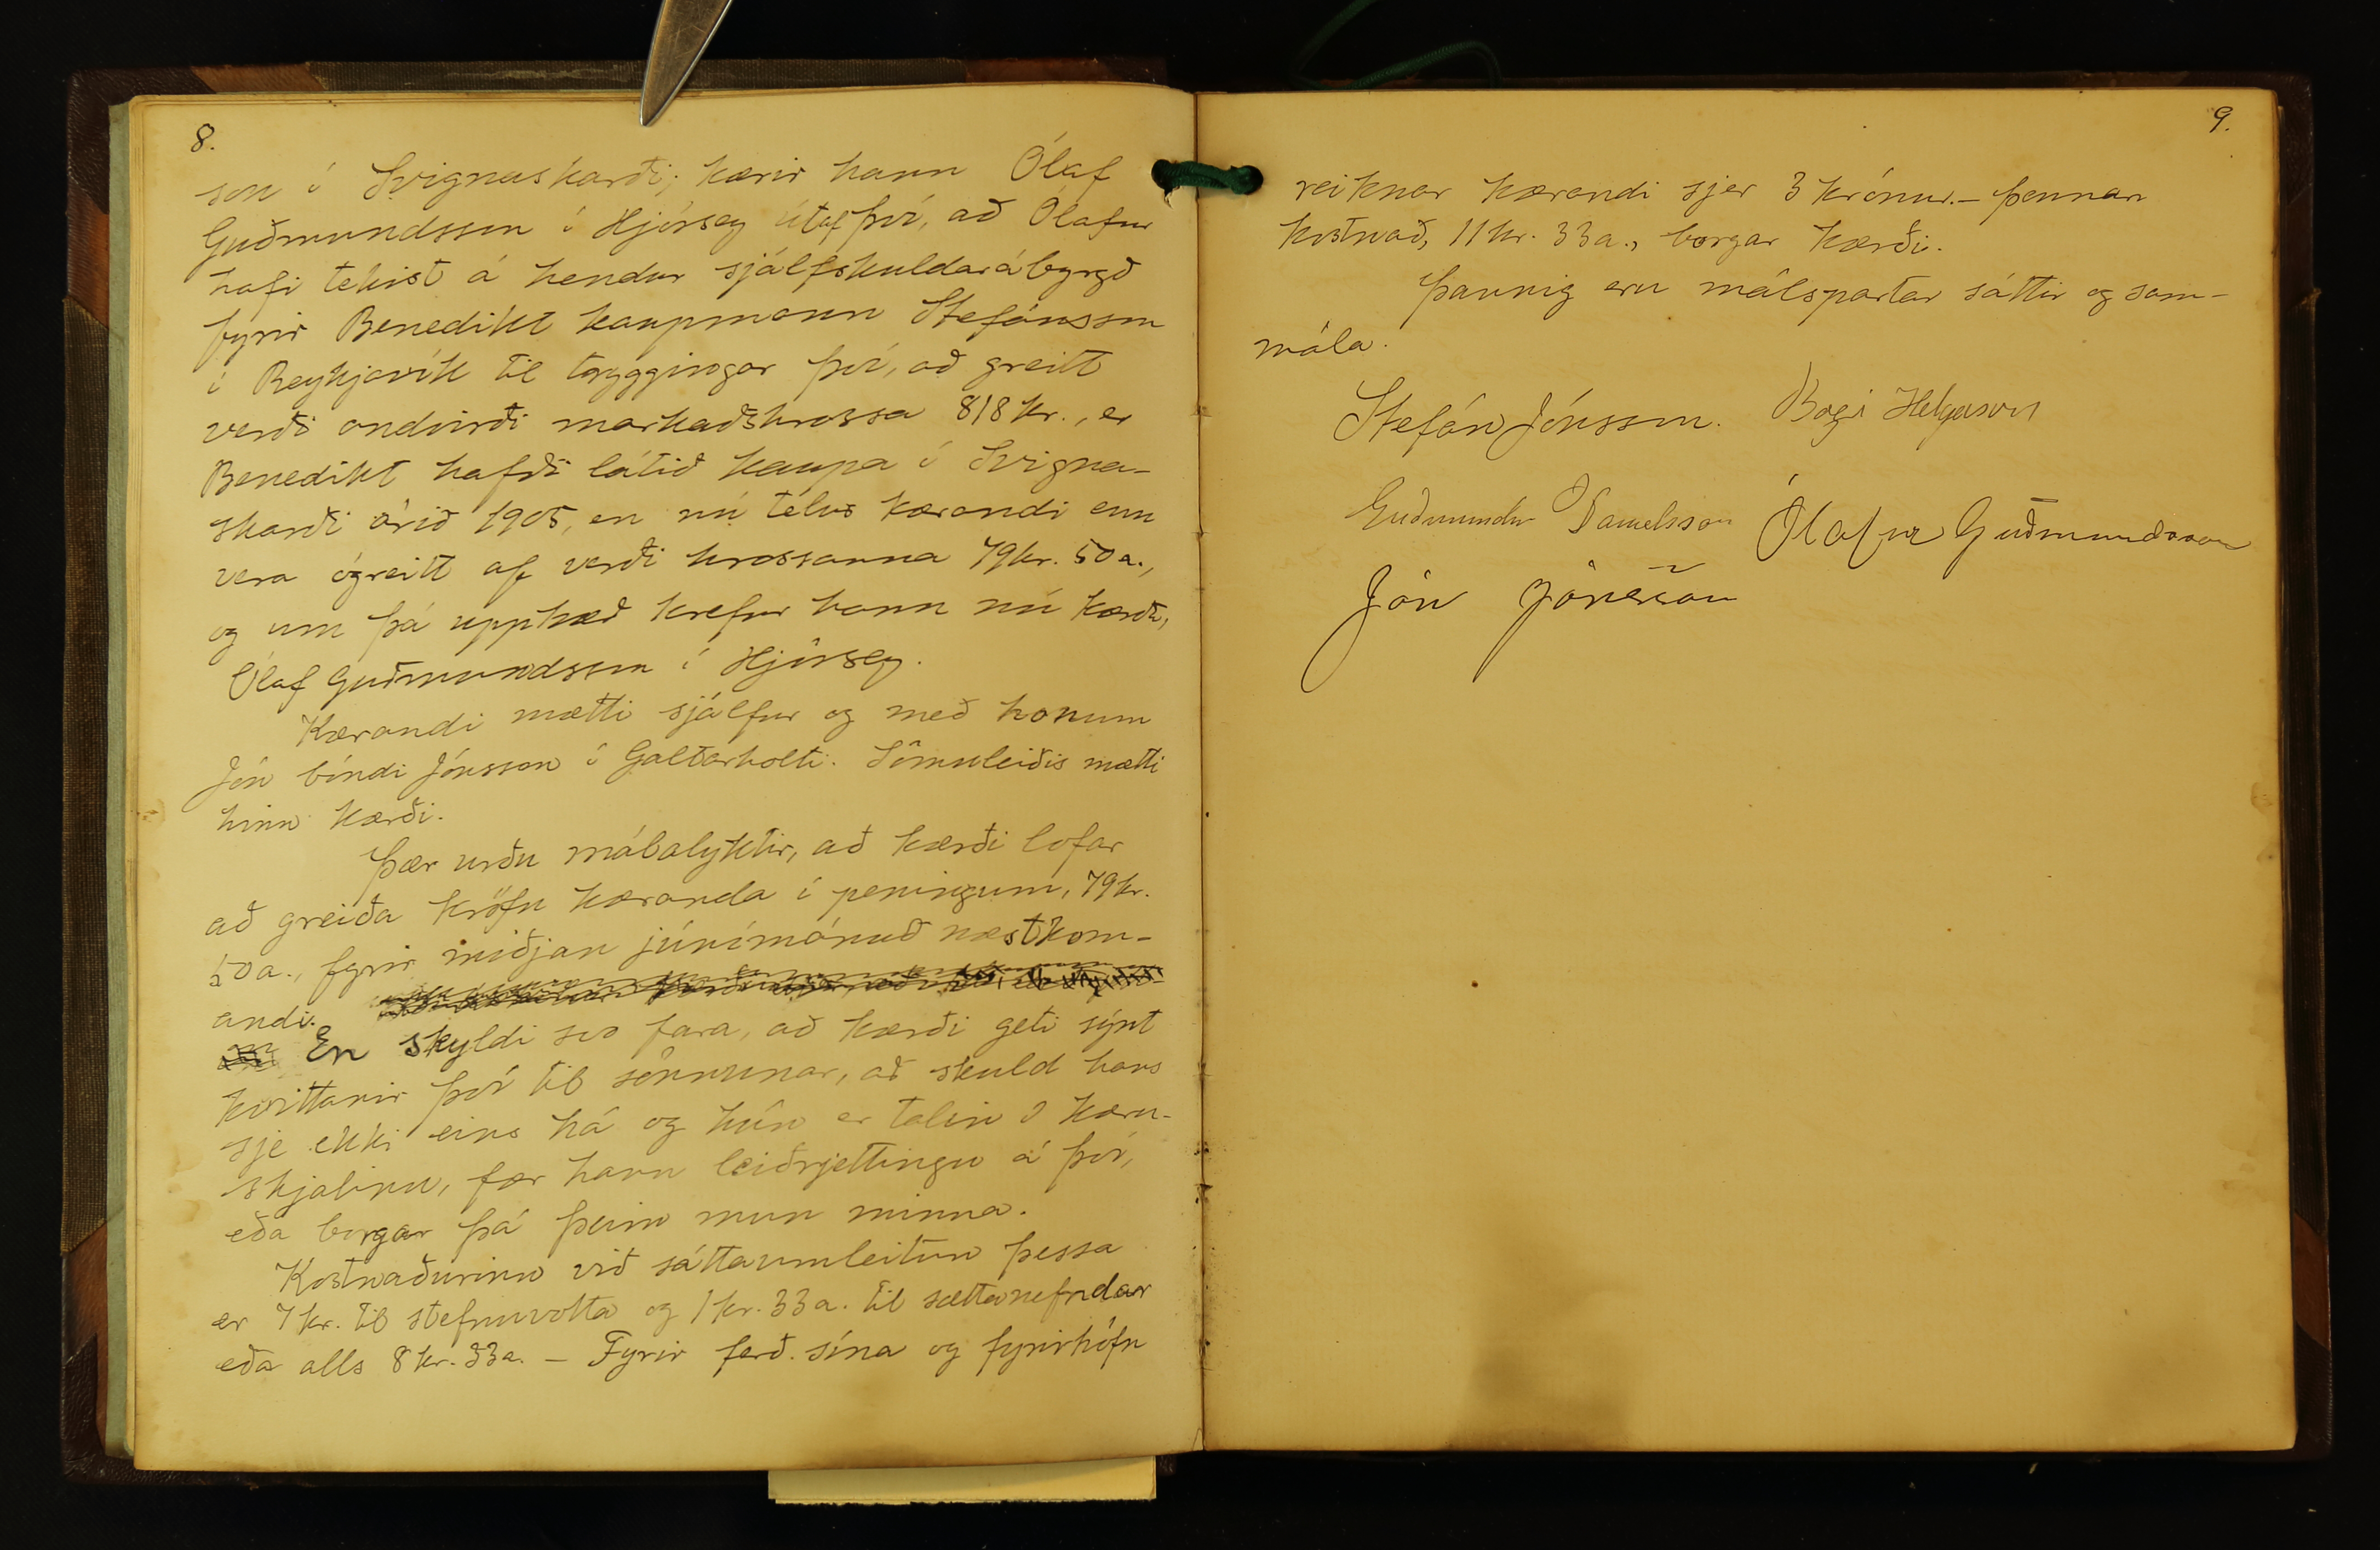 8.
son í Svignaskarði; kærir hann Ólaf
Guðmundsson í Hjörsey útaf því, að Ólafur
hafi tekist á hendur sjálfskuldarábyrgð
fyrir Benedikt kaupmann Stefánsson
í Reykjavík til tryggingar því, að greitt
verði andvirði markaðshrossa 818 kr., er
Benedikt hafði látið kaupa í Svigna-
skarði árið 1905, en nú telur kærandi enn
vera ógreitt af verði hrossanna 79 kr. 50 a.,
og um þá upphæð krefur hann nú kærða,
Ólaf Guðmundsson í Hjörsey.
Kærandi mætti sjálfur og með honum
Jón bóndi Jónsson í Galtarholti. Sömuleiðis mætti
hinn kærði.
Þær urðu málalyktir, að kærði lofar
að greiða kröfu kæranda í peningum, 79 kr.
50 a., fyrir miðjan júnímánuð næstkom-
andi.
En skyldi svo fara, að kærði geti sýnt
kvittanir því til sönnunar, að skuld hans
sje ekki eins há og hún er talin í kæru-
skjalinu, fær hann leiðrjettingu á því,
eða borgar þá þeim mun minna.
Kostnaðurinn við sáttaumleitun þessa
er 7 kr. til stefnuvotta og 1 kr. 33 a. til sáttanefndar
eða alls 8 kr. 33 a. – Fyrir ferð sína og fyrirhöfn
9.
reiknar kærandi sjer 3 krónur. – Þennan
kostnað, 11 kr. 33 a., borgar kærði.
Þannig eru málspartar sáttir og sam-
mála.
Stefán Jónsson. Bogi Helgason
Guðmundur Danielsson Ólafur Guðmundsson
Jón Jónsson